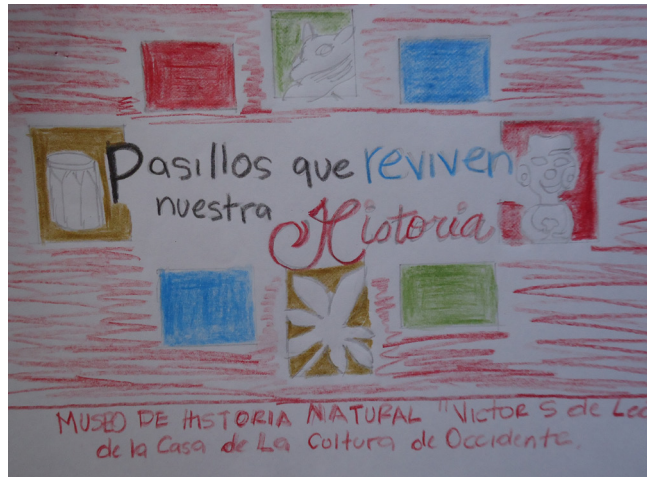 Pasillos que reviven
nuestra Historia
MUSEO DE HISTORIA NATURAL "Victor S de
de la Casa de La Coltura de Occidente.